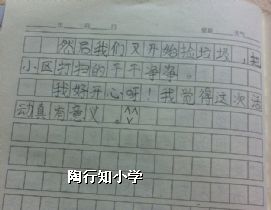 然后我们又开始捡垃圾,把
小区打扫的干干净净。
我好开心呀!我觉得这次活
动真有意义。
陶行知小学